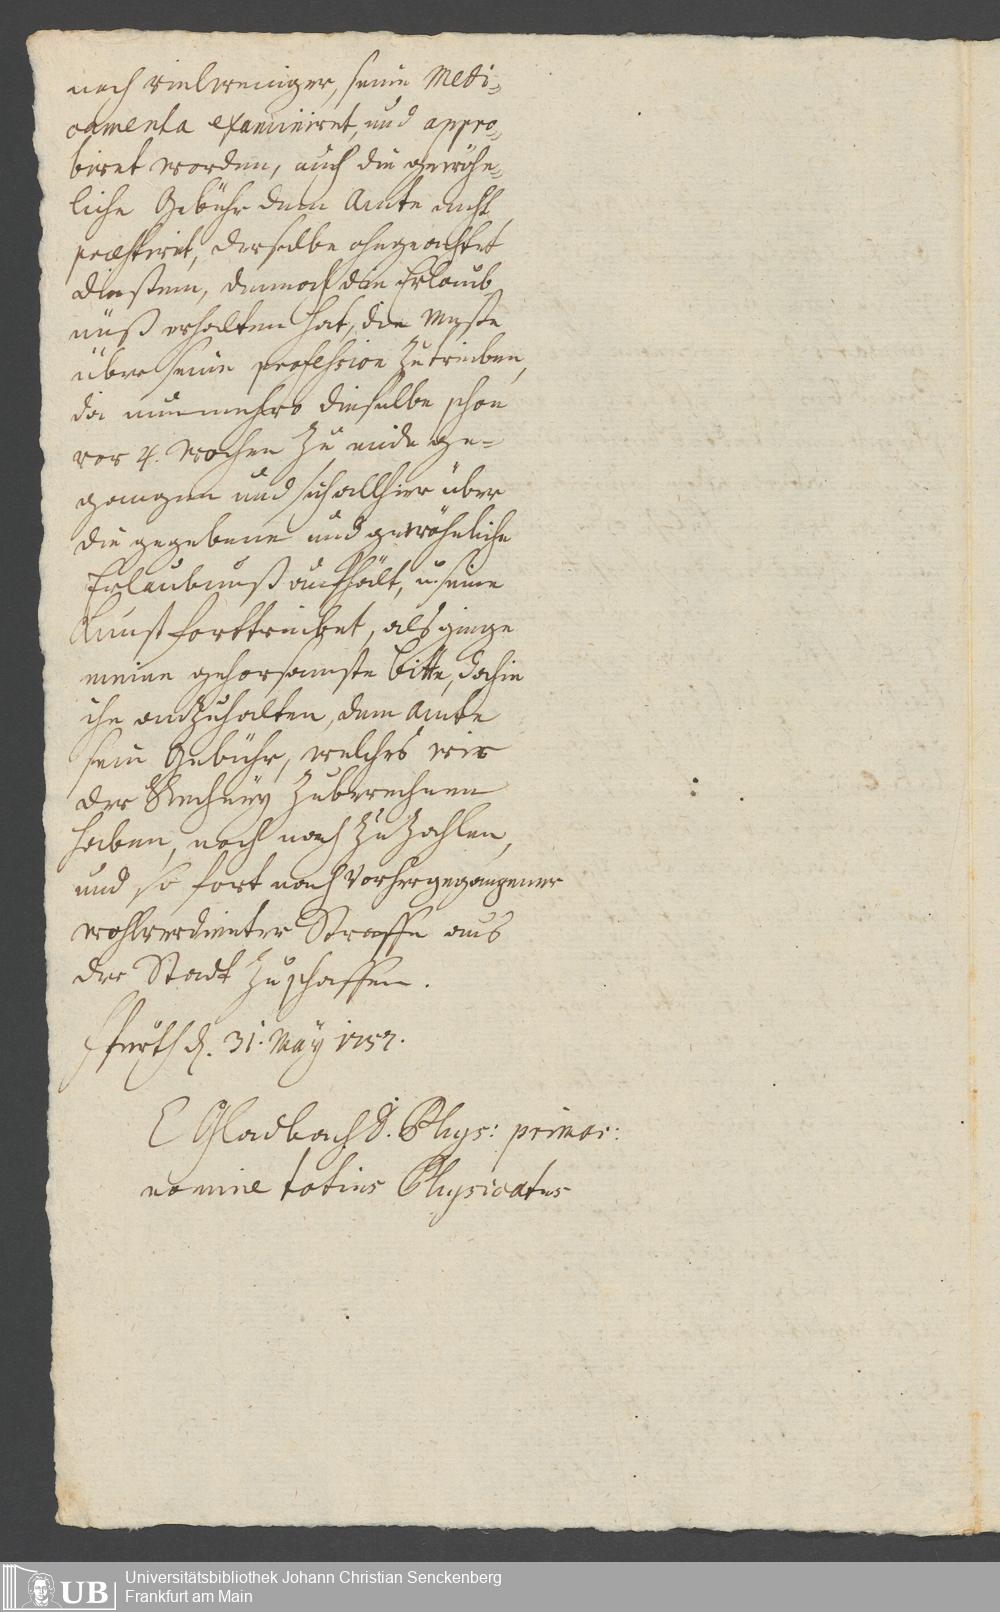 noch vielweniger, seine Medi-
camenta examiniret, und appro-
biret worden, auch die gewöhn-
liche Gebühr dem Amte nicht
præstiret, derselbe ohngeachtet
diesem, dennoch die Erlaub
nüß erhalten hat, die Meße
über seine profession zu treiben,
da nunmehro dieselbe schon
vor 4. Wochen zu ende ge-
gangen und sich allhier über
die gegebene und gewöhnliche
Erlaubnuß aufhält, u. seine
Kunst forttreibet, als ginge
meine gehorsamste bitte, dahin
ihn anzuhalten, dem Amte
sein Gebühr, welches wir
der Rechney zuberechnen
haben, noch nach zu zahlen,
und so fort nach vorhergegangener
wohlverdienter Straffe aus
der Stadt zu schaffen.
d. 31. May 1757.
Gladbach D. Phys: primar:
nomine totius Physicatus
UB Universitätsbibliothek Johann Christian Senckenberg
Frankfurt am Main